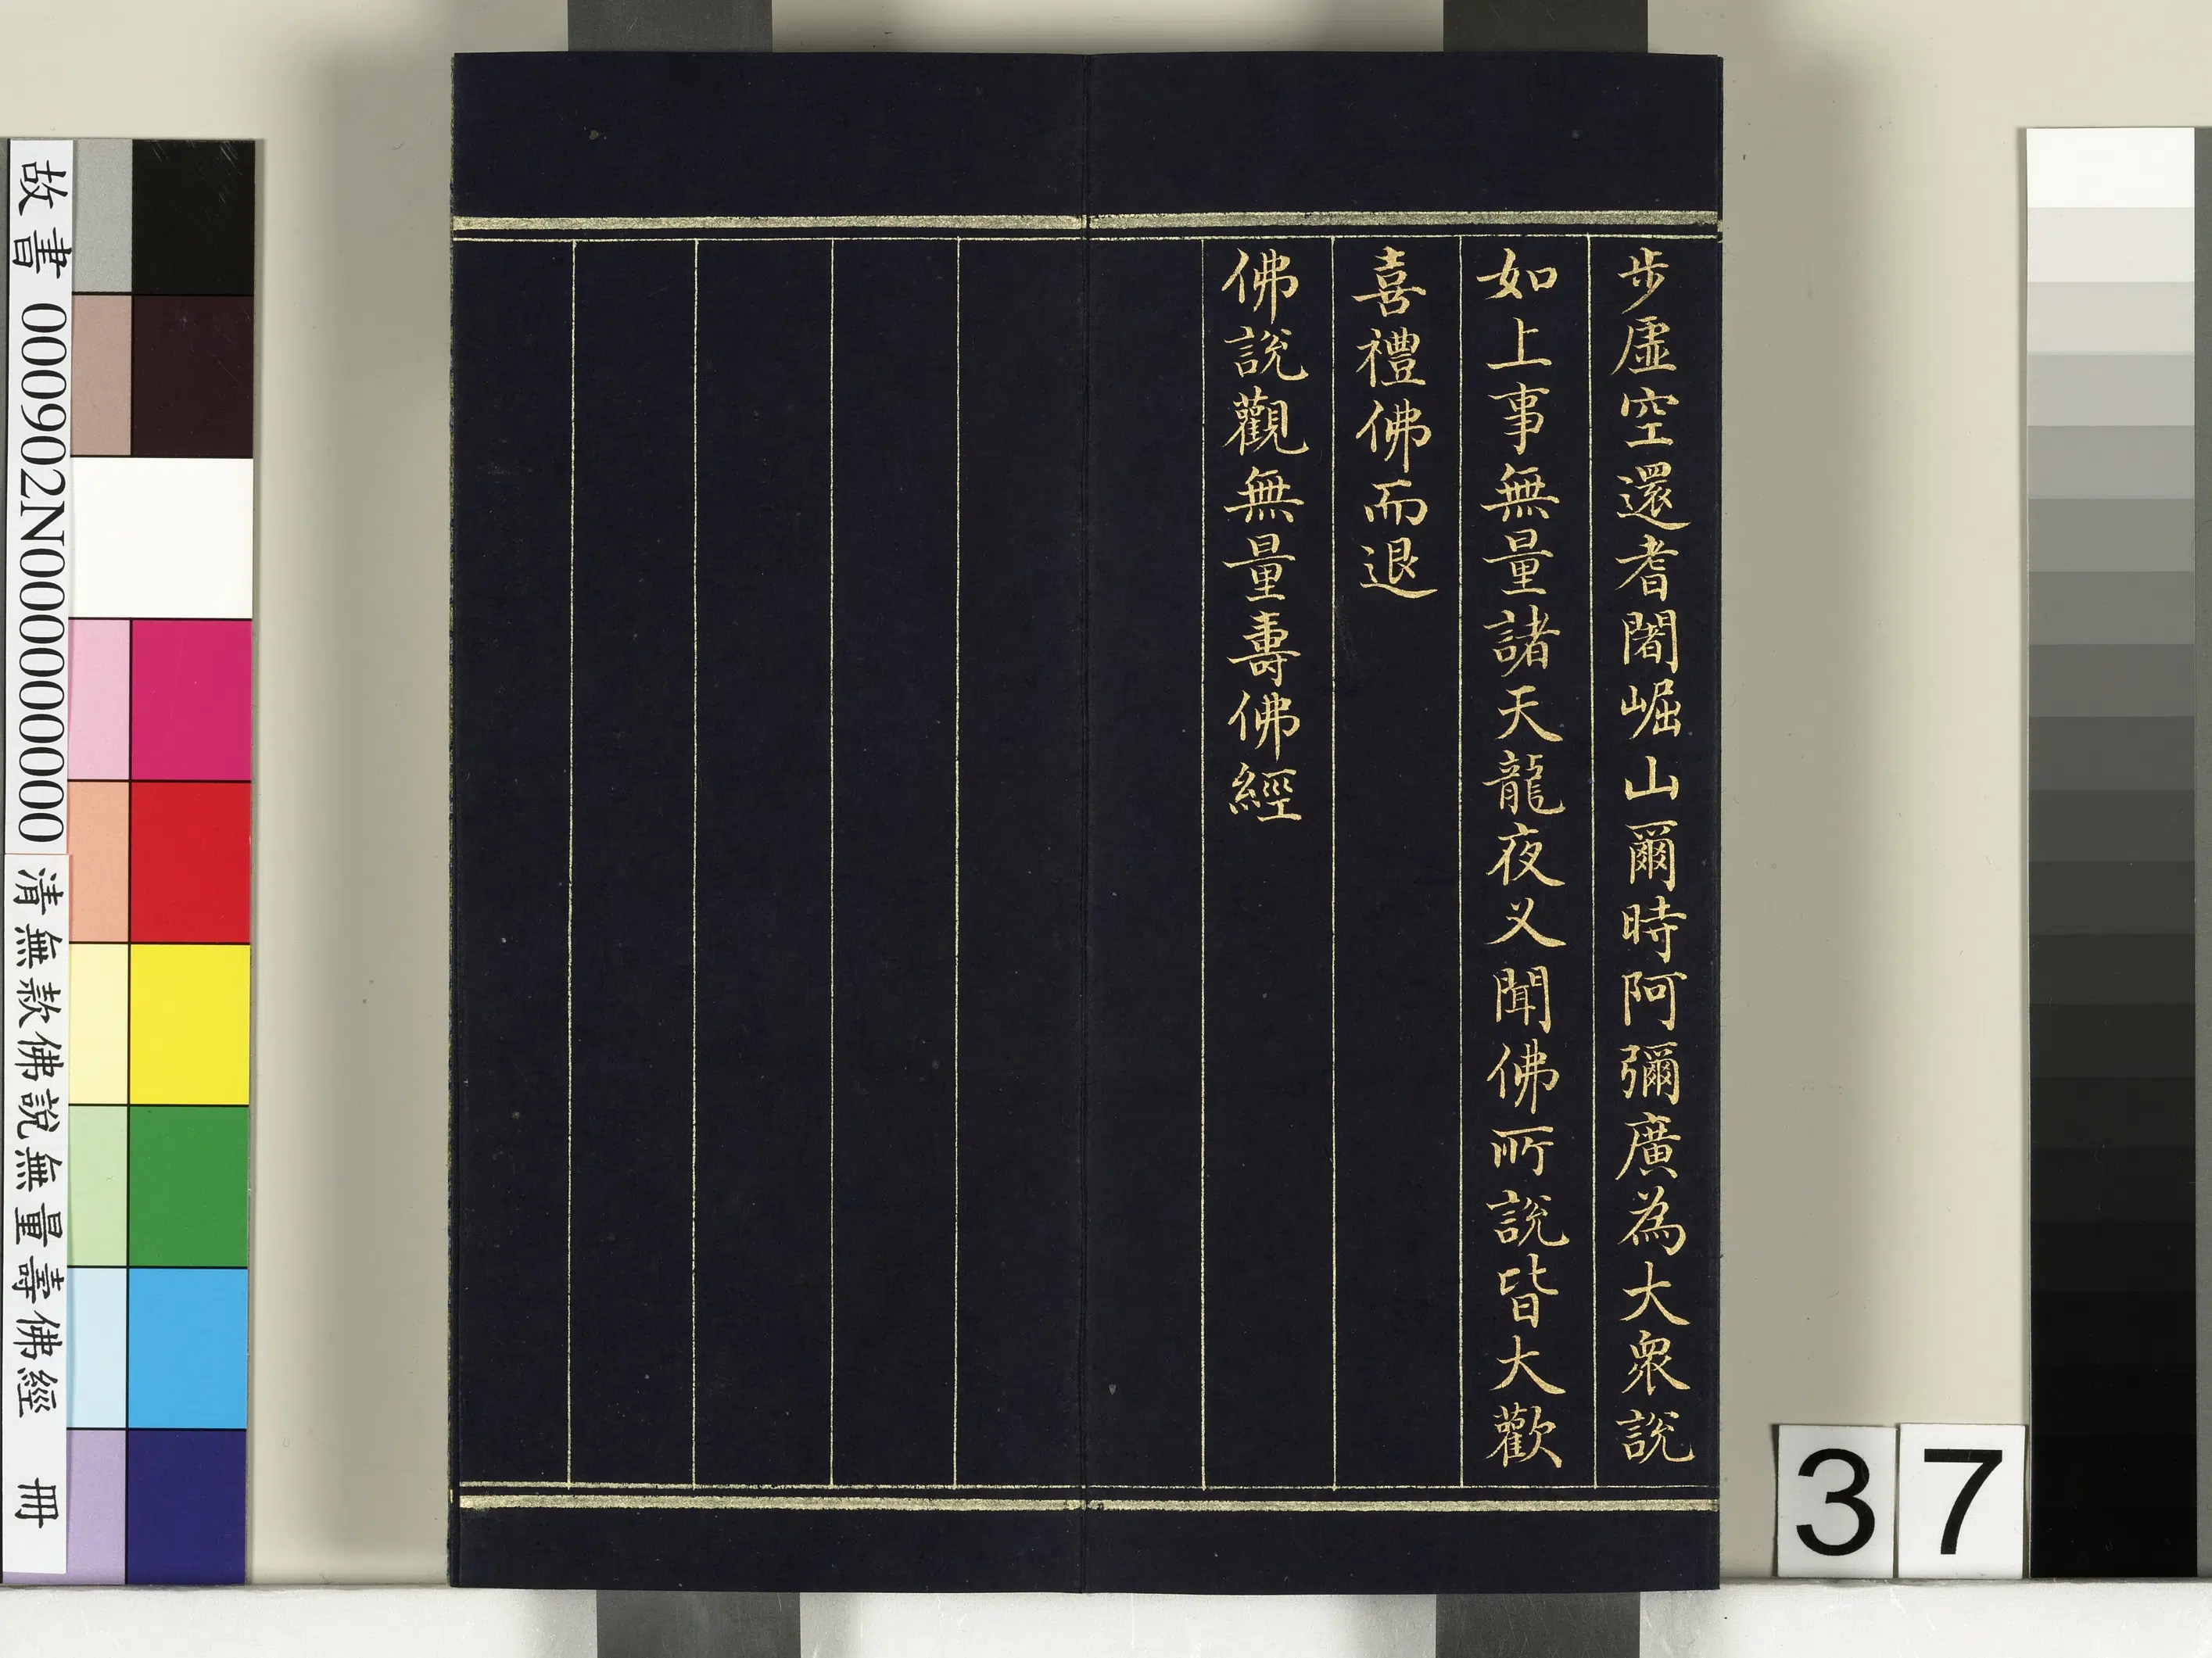 步虛空還耆闍崛山爾時阿彌廣為大衆說
如上事無量諸天龍夜义聞佛所說皆大歡
喜禮佛而退
佛說觀無量壽佛經
故書 000902N000000000 清無款佛說無量壽佛經 冊
37